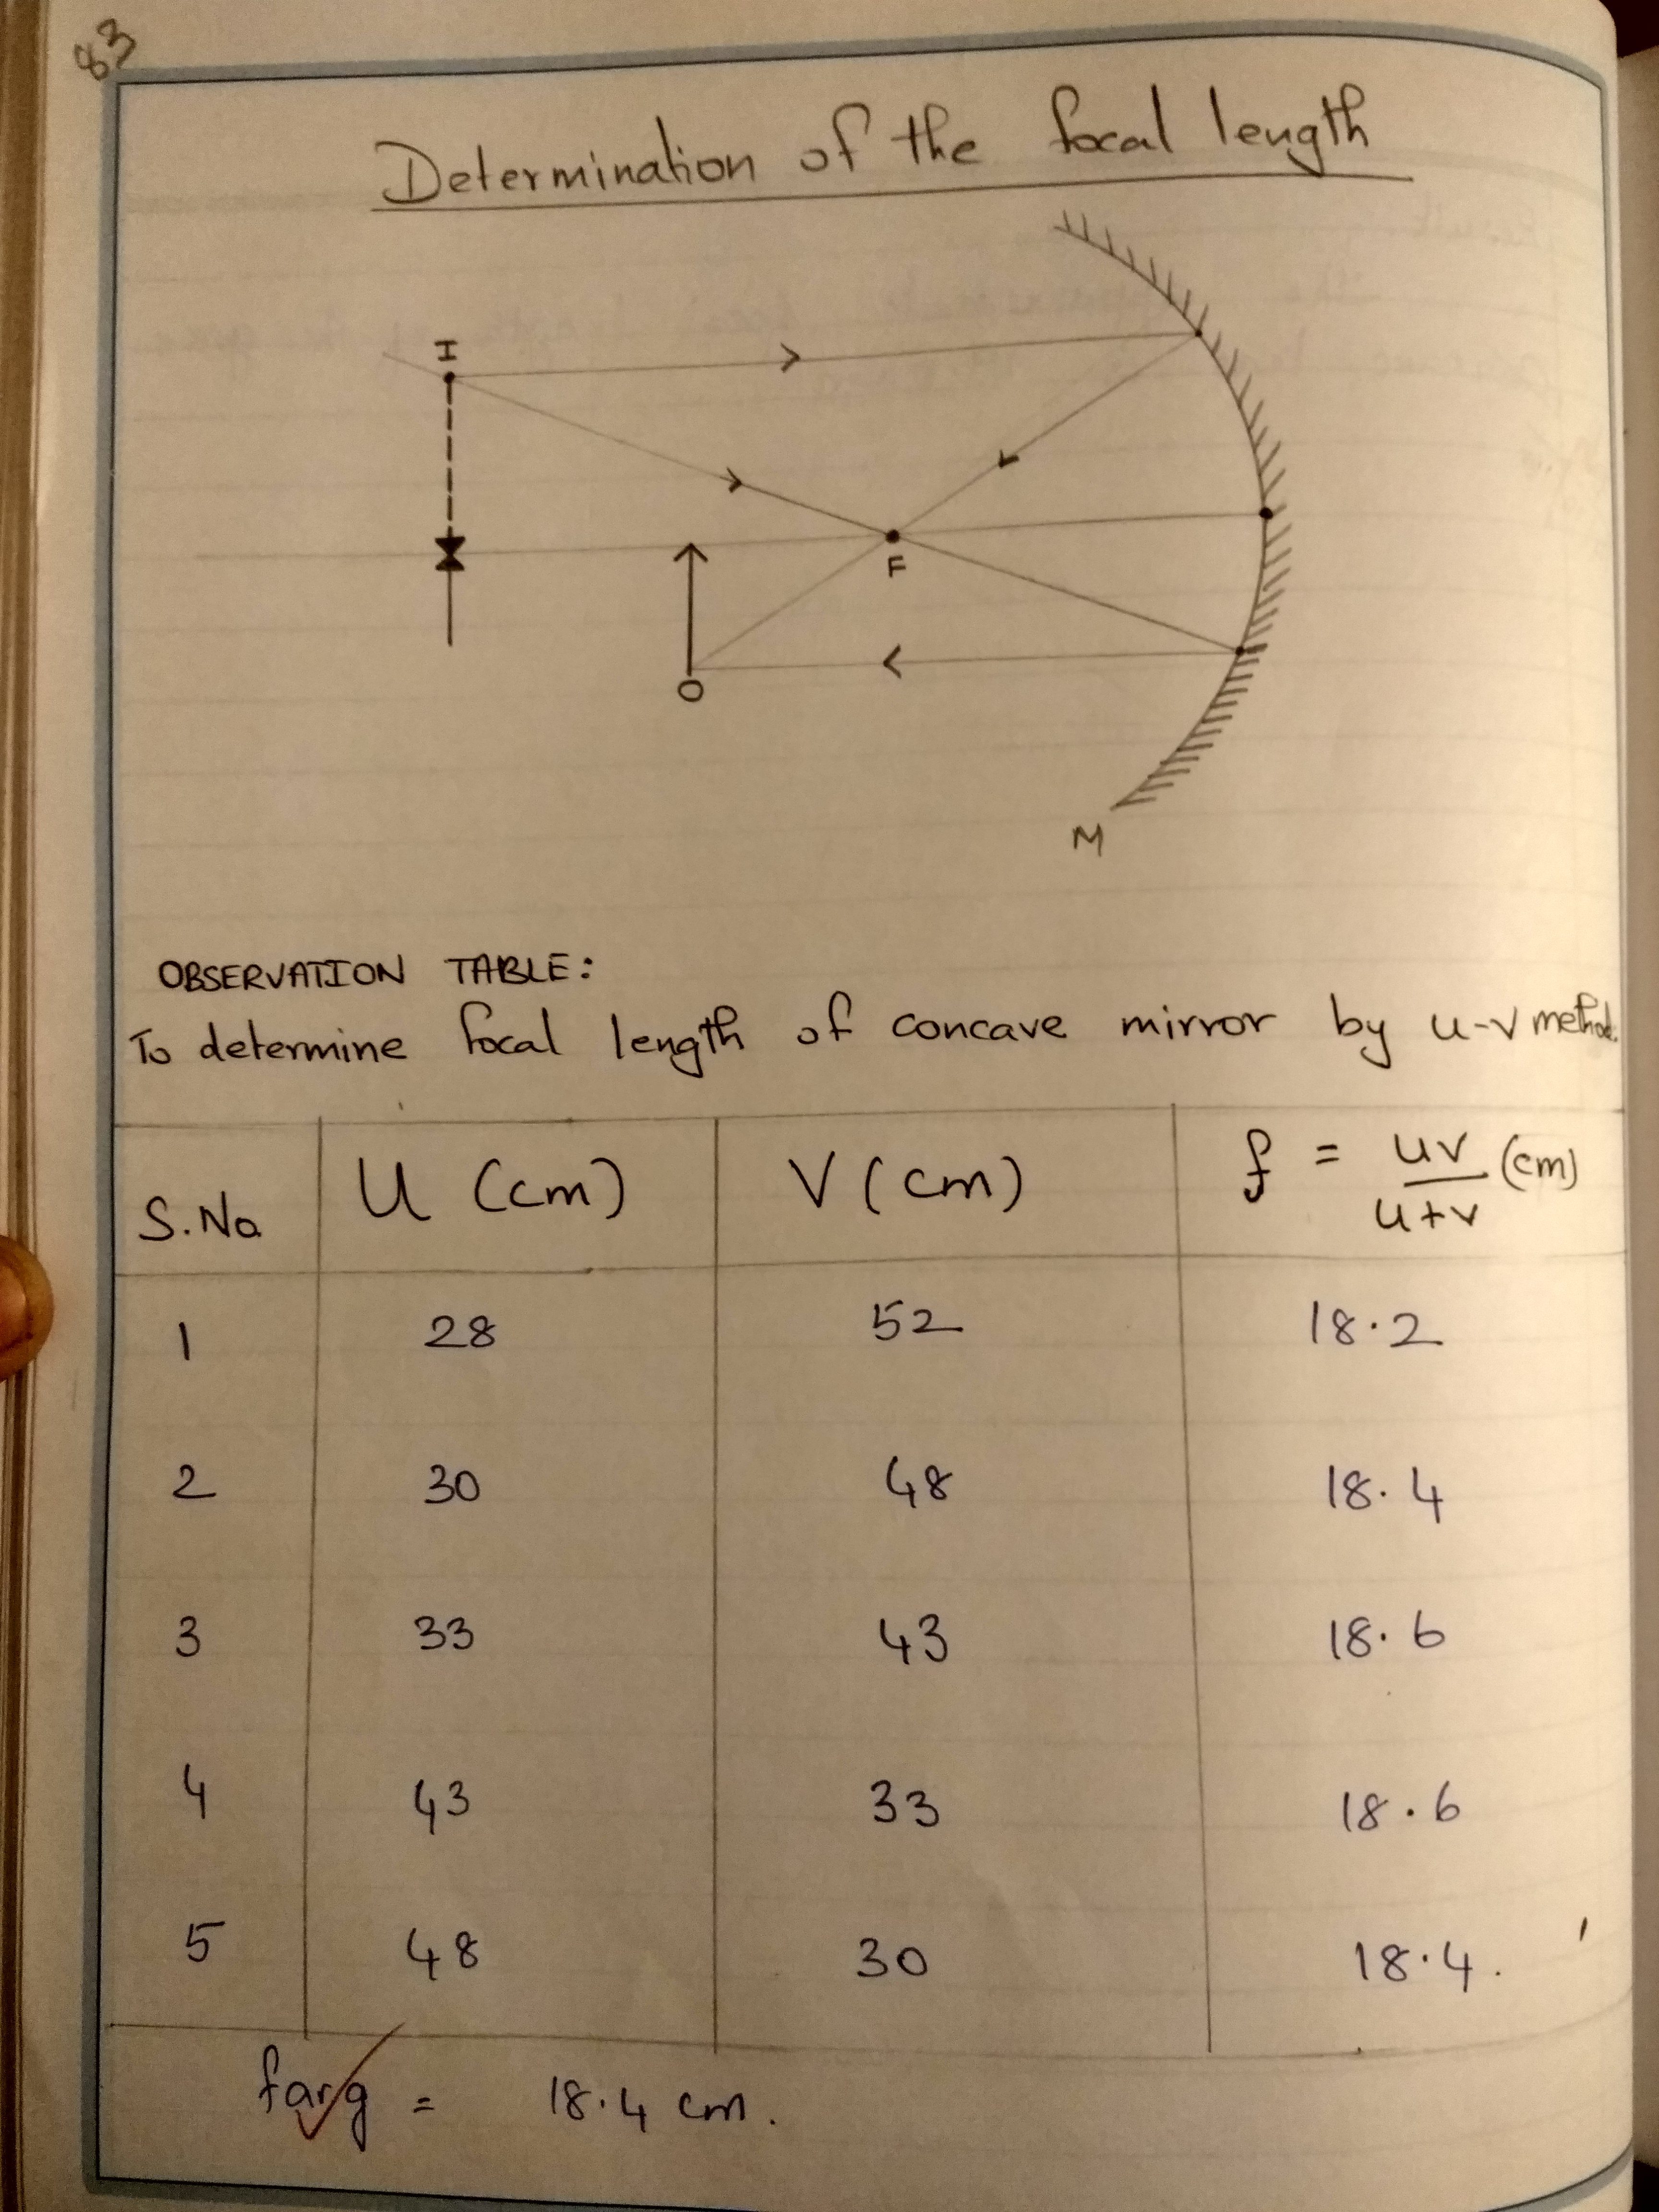 83
Determination of the focal length
I
F
O
M
OBSERVATION TABLE:
To determine focal length of concave mirror by u-v method.
S.No. U (cm) V (cm) f = uv/u+v (cm)
1 28 52 18.2
2 30 48 18.4
3 33 43 18.6
4 43 33 18.6
5 48 30 18.4.
favg = 18.4 cm.